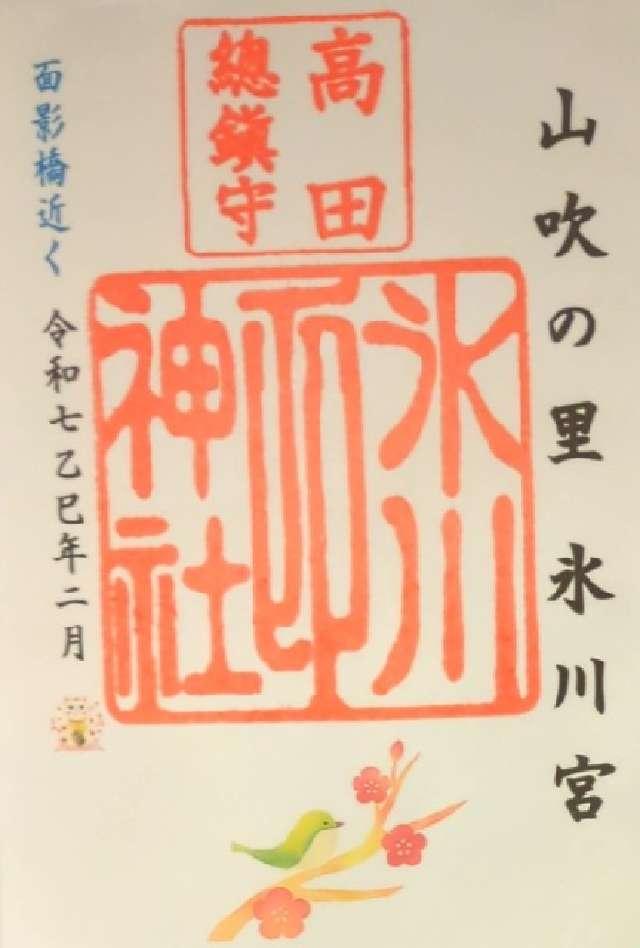 山吹の里 氷川宮
高田
總鎮守
氷川
神社
面影橋近く
令和七乙巳年二月